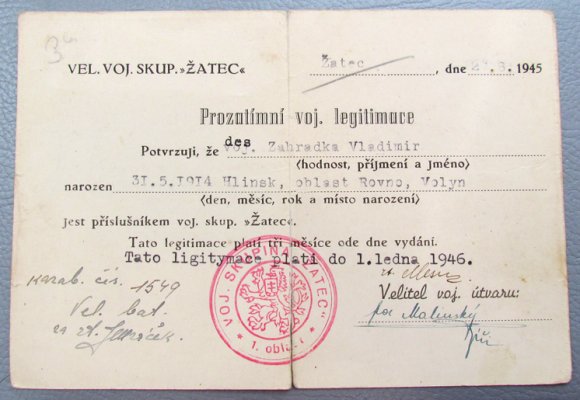 VEL. VOJ. SKUP. »ŽATEC«
Žatec, dne 1945
Prozatímní voj. legitimace
des
Potvrzuji, že voj. Zahradka Vladimir
(hodnost, příjmení a jméno)
narozen 31.5.1914 Hlinsk, oblast Rovno, Volyn
(den, měsíc, rok a místo narození)
jest příslušníkem voj. skup. »Žatec«.
Tato legitimace platí tři měsíce ode dne vydání.
Tato ligitymace plati do 1.ledna 1946.
karab. čís. 1549
Vel. bat.
Velitel voj. útvaru:
VOJ. SKUPINA "ŽATEC"
* 1. oblast *